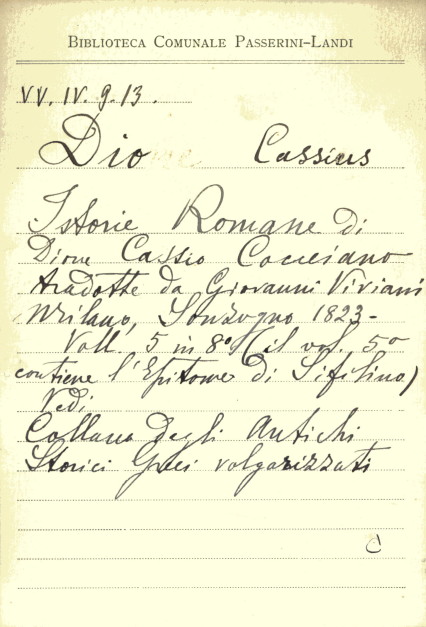 BIBLIOTECA COMUNALE PASSERINI-LANDI
VV. IV. 9. 13.
Dio Cassius
Istorie Romane di
Dione Cassio Cocceiano
tradotte da Giovanni Viviani
Milano, Sonzogno 1823-
Voll. 5 in 8º (il vol. 5º
contiene l'Epitome di Sifilino)
Vedi
Collana degli Antichi
Storici Greci volgarizzati